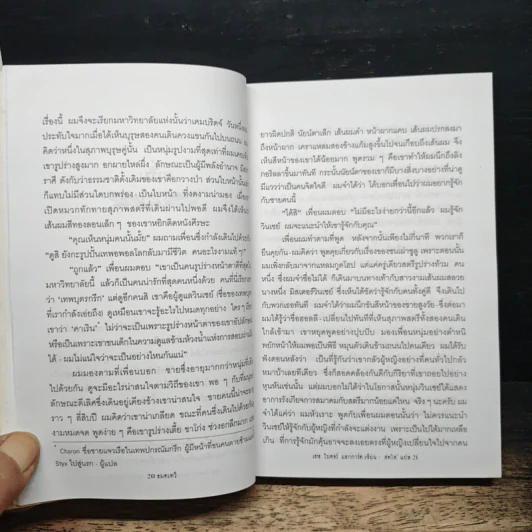 เรื่องนี้ ผมจึงจะเรียกมหาวิทยาลัยแห่งนั้นว่าเคมบริดจ์ วันหนึ่ง
ประทับใจมากเมื่อได้เห็นบุรุษสองคนเดินควงแขนกันไปบนถนน
คิดว่าหนึ่งในสุภาพบุรุษคู่นั้น เป็นหนุ่มรูปงามที่สุดเท่าที่ผมเคย
เขารูปร่างสูงมาก อกผายไหล่ผึ่ง ลักษณะเป็นผู้มีพลังอำนาจ มี
ราศี ดังกับว่าธรรมชาติตั้งเดิมของเขาคือกวางป่า ส่วนใบหน้านั้น
ก็แทบไม่มีส่วนใดบกพร่อง เป็นใบหน้า ที่งดงามน่ามอง เมื่อ
เปิดหมวกทักทายสุภาพสตรีที่เดินผ่านไปพอดี ผมจึงได้เห็น
เส้นผมสีทองลอนเล็ก ๆ ของเขาหยิกติดหนังศีรษะ
"คุณเห็นหนุ่มคนนั้นมั้ย" ผมถามเพื่อนซึ่งกำลังเดินไปด้วย
"ดูสิ ยังกะรูปปั้นเทพอพอลโลกลับมามีชีวิต คนอะไรงามแท้ ๆ"
"ถูกแล้ว" เพื่อนผมตอบ "เขาเป็นคนรูปร่างหน้าตาดีที่สุด
มหาวิทยาลัยนี้ แล้วก็เป็นคนน่ารักที่สุดคนหนึ่งด้วย คนที่นี่เรียก
ว่า "เทพบุตรกรีก" แต่ดูอีกคนสิ เขาคือผู้ดูแลวินเซย์ (ชื่อของเทพบุตร
ที่เรากำลังเอ่ยถึง) ดูเหมือนเขาจะรู้อะไรไปหมดทุกอย่าง ใคร ๆ
เขาว่า 'คาเริน' ไม่ว่าจะเป็นเพราะรูปร่างหน้าตาของเขาอัปลักษณ์
หรือเป็นเพราะเขาชนเด็กในความดูแลข้ามห้วงน้ำแห่งการสอบมา
ได้ - ผมไม่แน่ใจว่าจะเป็นอย่างไหนกันแน่"
ผมมองตามที่เพื่อนบอก ชายซึ่งอายุมากกว่าหนุ่มที่
ไปด้วยกัน ดูจะมีอะไรน่าสนใจตามวิถีของเขา พอ ๆ กับที่
ลักษณะดีเลิศซึ่งเดินอยู่เคียงข้างเขาน่าสนใจ ชายคนนี้น่าจะ
ราว ๆ สี่สิบปี ผมคิดว่าเขาน่าเกลียด ขณะที่คนซึ่งเดินไปด้วย
งามหมดจด พูดง่าย ๆ คือเขารูปร่างเตี้ย ขาโก่ง ช่วงอกลึก
Charon ชื่อชายแจวเรือในเทพปกรณัมกรีก ผู้มีหน้าที่ขนคนตายข้าม
Styx ไปสู่นรก - ผู้แปล
20 อมตเทวี
ยาวผิดปกติ นัยน์ตาเล็ก เส้นผมดำ หน้าผากแคบ เส้นผมปรกลงมา
ถึงหน้าผาก เคราแหลมสองข้างแก้มสูงขึ้นไปจนเกือบถึงเส้นผม จึง
เห็นสีหน้าของเขาได้น้อยมาก พูดรวม ๆ คือเขาทำให้ผมนึกถึงลิง
กอริลลาขึ้นมาทันที กระนั้นนัยน์ตาของเขาก็มีบางสิ่งบางอย่างที่น่าดู
มีแววว่าเป็นคนจิตใจดี ผมจำได้ว่า ได้บอกเพื่อนไปว่าผมอยากรู้จัก
กับชายคนนี้
"ได้สิ" เพื่อนผมตอบ "ไม่มีอะไรง่ายกว่านี้อีกแล้ว ผมรู้จัก
วินเซย์ ผมจะแนะนำให้เขารู้จักกับคุณ"
เพื่อนผมทำตามที่พูด หลังจากนั้นเพียงไม่กี่นาที พวกเราก็
ยืนคุยกัน - ผมคิดว่า พูดคุยเกี่ยวกับเรื่องของชนเผ่าซูลู เพราะตอนนั้น
ผมเพิ่งกลับมาจากแหลมกู๊ดโฮป แต่แค่ครู่เดียวสตรีรูปร่างท้วม คนหนึ่ง
ซึ่งผมจำชื่อไม่ได้ ก็เดินมาบนทางเท้ากับสาวงามเส้นผมสลวย
นางหนึ่ง มิสเตอร์วินเซย์ ซึ่งเห็นได้ชัดว่ารู้จักกับคนทั้งคู่ดี จึงเดินไป
กับพวกเธอทันที ผมจำได้ว่าผมนึกขันสีหน้าของชายสูงวัย-ซึ่งต่อมา
ผมได้รู้ว่าชื่อฮอลลี - เปลี่ยนไปทันทีที่เห็นสุภาพสตรีทั้งสองคนเดิน
ใกล้เข้ามา เขาหยุดพูดอย่างปุบปับ มองเพื่อนหนุ่มอย่างตำหนิ
พยักหน้าให้ผมพอเป็นพิธี หมุนตัวเดินข้ามถนนไปคนเดียว ผมได้รับ
ฟังตอนหลังว่า เป็นที่รู้กันว่าเขากลัวผู้หญิงอย่างที่คนทั่วไปกลัว
หมาบ้าเลยทีเดียว ซึ่งก็สอดคล้องกันดีกับกิริยาที่เขารีบถอยไปอย่าง
หุนหันเช่นนั้น แต่ผมบอกไม่ได้ว่าในโอกาสนั้นหนุ่มวินเซย์ได้แสดง
อาการรังเกียจการสมาคมกับสตรีมากน้อยแค่ไหน จริง ๆ นะครับ ผม
จำได้แค่ว่า ผมหัวเราะ พูดกับเพื่อนผมตอนนั้นว่า ไม่ควรแนะนำ
วินเซย์ให้รู้จักกับผู้หญิงที่กำลังจะแต่งงาน เพราะเป็นไปได้มากเหลือ
เกิน ที่การรู้จักมักคุ้นอาจจะลงเอยตรงที่ผู้หญิงเปลี่ยนใจไปจากคน
เฮช ไรเดอร์ แฮกการ์ด เขียน : สดใส แปล 21